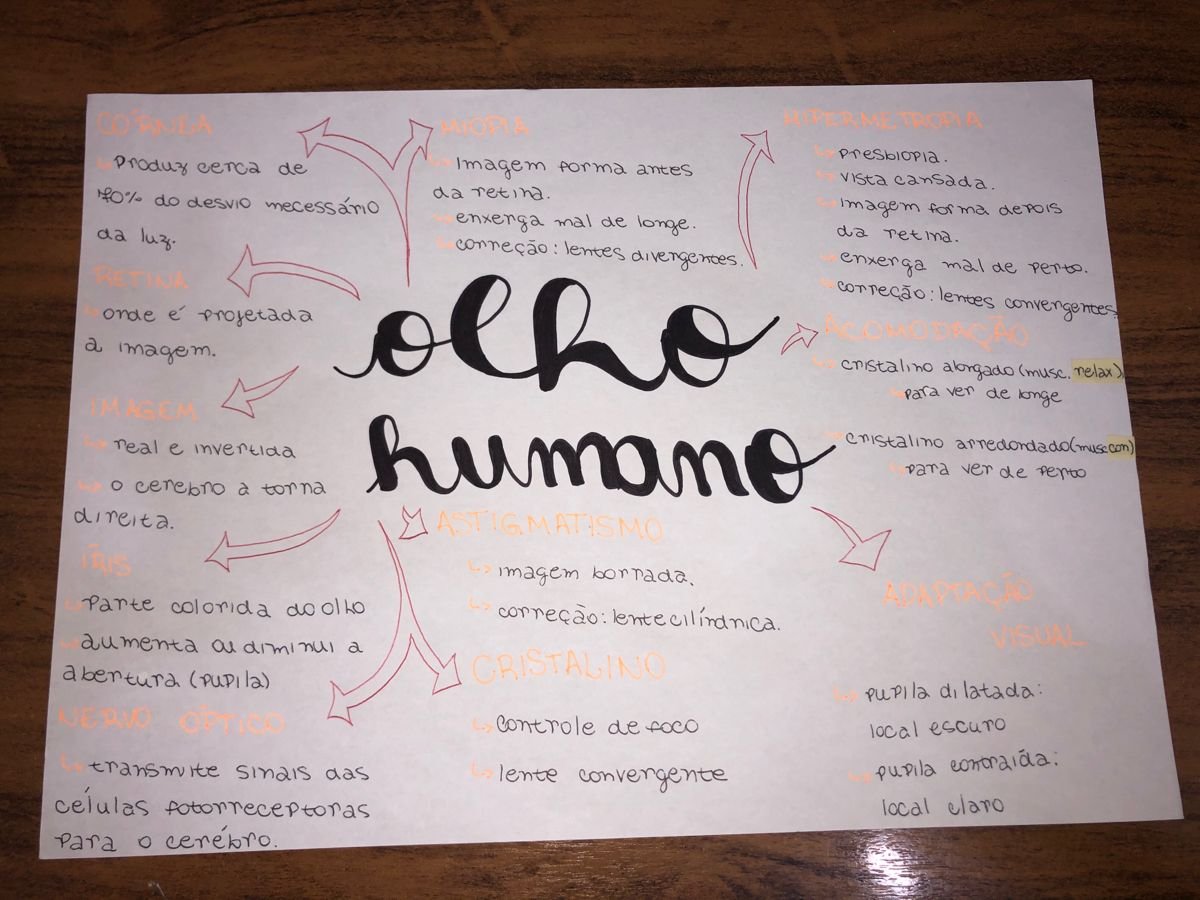 CÓRNEA
↳ Produz cerca de
70% do desvio mecessário
da luz.
RETINA
↳ onde é projetada
a imagem.
IMAGEM
↳ real e invertida
↳ o cerebro a torna
direita.
ÍRIS
↳ Parte colorida do olho
↳ aumenta ou diminui a
abertura (pupila)
NERVO ÓPTICO
↳ transmite sinais das
células fotorreceptoras
para o cerébro.
MIOPIA
↳ Imagem forma antes
da retina.
↳ enxerga mal de longe.
↳ correção: lentes divergentes.
olho
humano
ASTIGMATISMO
↳ imagem borrada.
↳ correção: lente cilíndrica.
CRISTALINO
↳ controle de foco
↳ lente convergente
HIPERMETROPIA
↳ presbiopia.
↳ vista cansada.
↳ imagem forma depois
da retina.
↳ enxerga mal de perto.
↳ correção: lentes convergentes.
ACOMODAÇÃO
↳ cristalino alongado (musc. relax)
↳ para ver de longe
↳ cristalino arredondado (musc con)
↳ para ver de perto
ADAPTAÇÃO
VISUAL
↳ pupila dilatada:
local escuro
↳ pupila contraída:
local claro